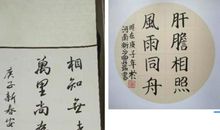 相知無
萬里尚
庚子新春安
肝膽相照
風雨同舟
時在庚子年於
河南新